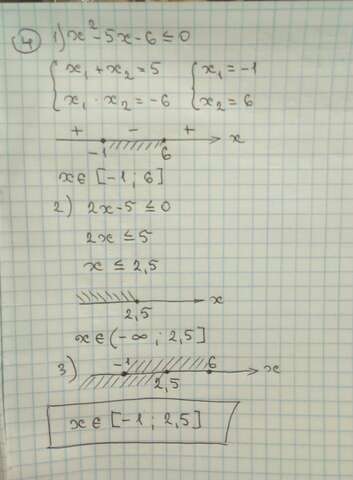 4) 1) x²-5x-6≤0
{ x₁+x₂=5 { x₁=-1
{ x₁·x₂=-6 { x₂=6
+ - + x
-1 6
x∈[-1;6]
2) 2x-5≤0
2x≤5
x≤2,5
x
2,5
x∈(-∞;2,5]
3) -1 6 x
2,5
x∈[-1;2,5]